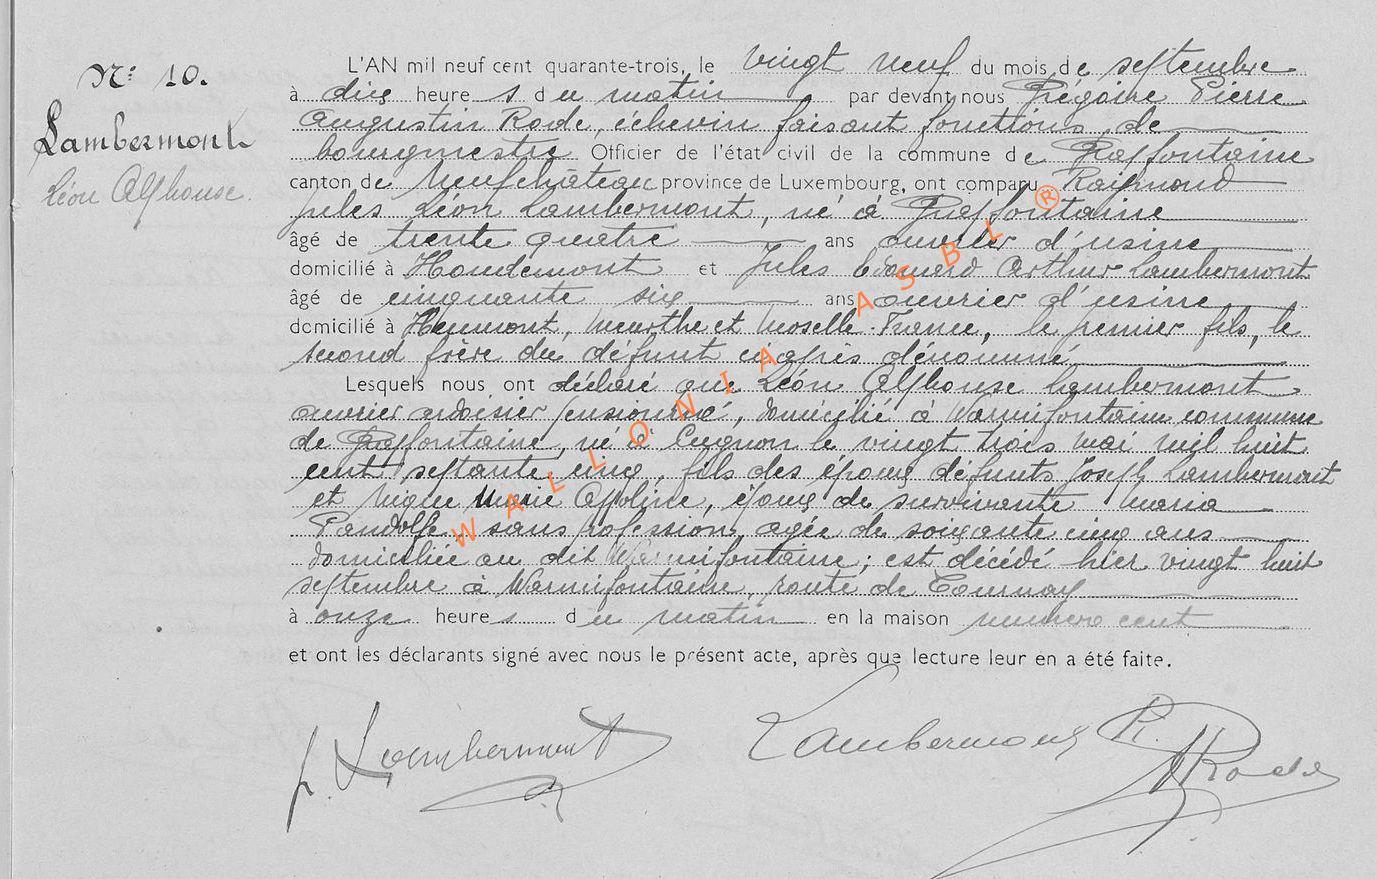 N° 10.
Lambermont
Léon Alphonse.
L'AN mil neuf cent quarante-trois, le vingt neuf du mois de septembre
à dix heures du matin par devant nous Grégoire Pierre
Augustin Rode, échevin faisant fonctions de
bourgmestre Officier de l'état civil de la commune de Grapfontaine
canton de Neufchâteau province de Luxembourg, ont comparu Raymond
Jules Léon Lambermont, né à Grapfontaine
âgé de trente quatre ans ouvrier d'usine
domicilié à Houdemont et Jules Edouard Arthur Lambermont
âgé de cinquante six ans ouvrier d'usine
domicilié à Meurthe et Moselle France, le premier fils, le
second frère du défunt ci après dénommé
Lesquels nous ont déclaré que Léon Alphonse Lambermont
ouvrier ardoisier pensionné, domicilié à Warmifontaine commune
de Grapfontaine, né à Cugnon le vingt trois mai mil huit
cent septante cinq, fils des époux défunts Joseph Lambermont
et Marie Appoline, époux de survivante Maria
Pandolfe, sans profession, agée de soixante cinq ans
domiciliée au dit Warmifontaine; est décédé hier vingt huit
septembre à Warmifontaine, route de Tournay
à onze heures du matin en la maison numéro cent
et ont les déclarants signé avec nous le présent acte, après que lecture leur en a été faite.
J. Lambermont
Lambermont R.
Rode
WALLONIA ASBL ®